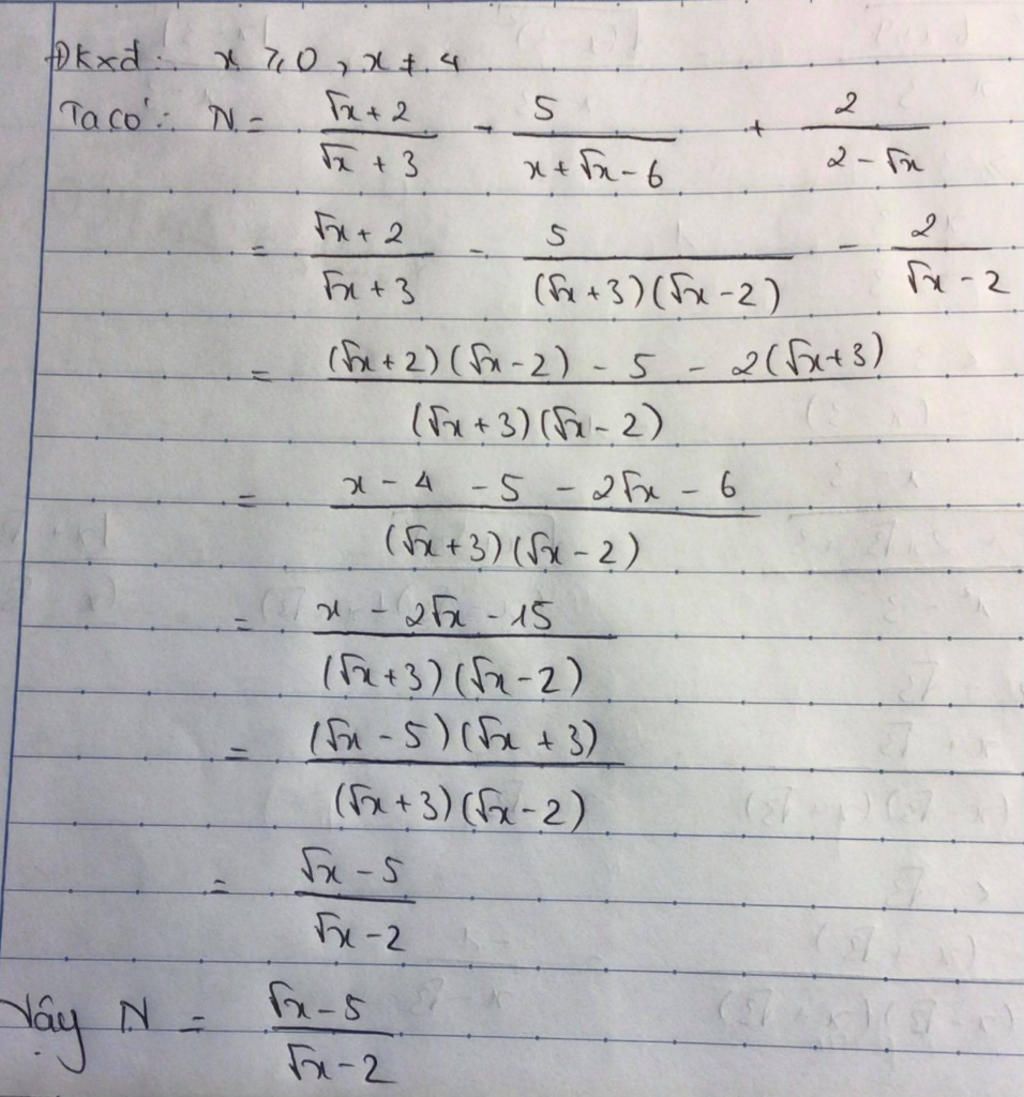 Đkxđ: x ≥ 0, x ≠ 4
Ta có: N = (√x + 2)/(√x + 3) - 5/(x + √x - 6) + 2/(2 - √x)
= (√x + 2)/(√x + 3) - 5/((√x + 3)(√x - 2)) - 2/(√x - 2)
= ((√x + 2)(√x - 2) - 5 - 2(√x + 3))/((√x + 3)(√x - 2))
= (x - 4 - 5 - 2√x - 6)/((√x + 3)(√x - 2))
= (x - 2√x - 15)/((√x + 3)(√x - 2))
= ((√x - 5)(√x + 3))/((√x + 3)(√x - 2))
= (√x - 5)/(√x - 2)
Vậy N = (√x - 5)/(√x - 2)